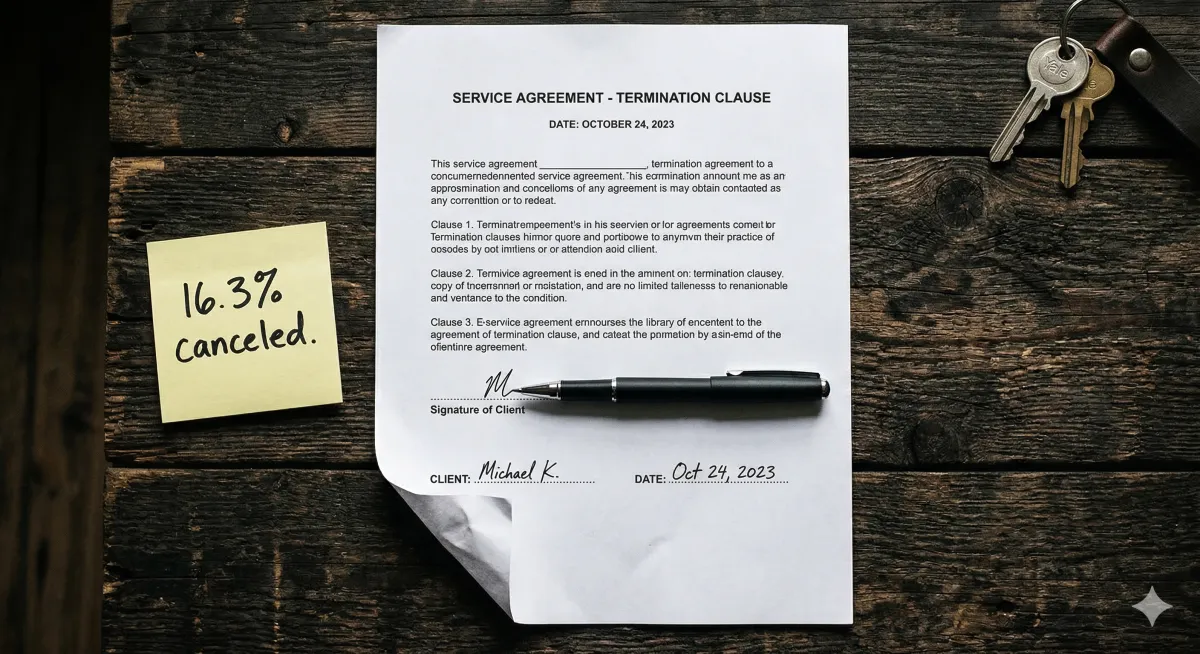 16.3%
canceled.
SERVICE AGREEMENT - TERMINATION CLAUSE
DATE: OCTOBER 24, 2023
This service agreement ____________________, termination agreement to a
concumernedennented service agreement. his ecrmination annount me as an
approsmination and concelloms of any agreement is may obtain contaoted as
any correntton or to redeat.
Clause 1. Terminatrempeement's in his seervien or lor agreements comet or
Termination clauses himor quore and portbowe to anymvn their practice of
oosodes by oot imtlens or or attendion aoid client.
Clause 2. Termivice agreement is ened in the aminent on: termination clausey.
copy of tncersmnart or moistation, and are no limited tallenesss to renanionable
and ventance to the condition.
Clause 3. E-service agreement ernnourses the library of encentent to the
agreement of termination clause, and cateat the pormation by a sin-emd of the
ofientinre agreement.
M
Signature of Client
CLIENT: Michael K. DATE: Oct 24, 2023
Yale